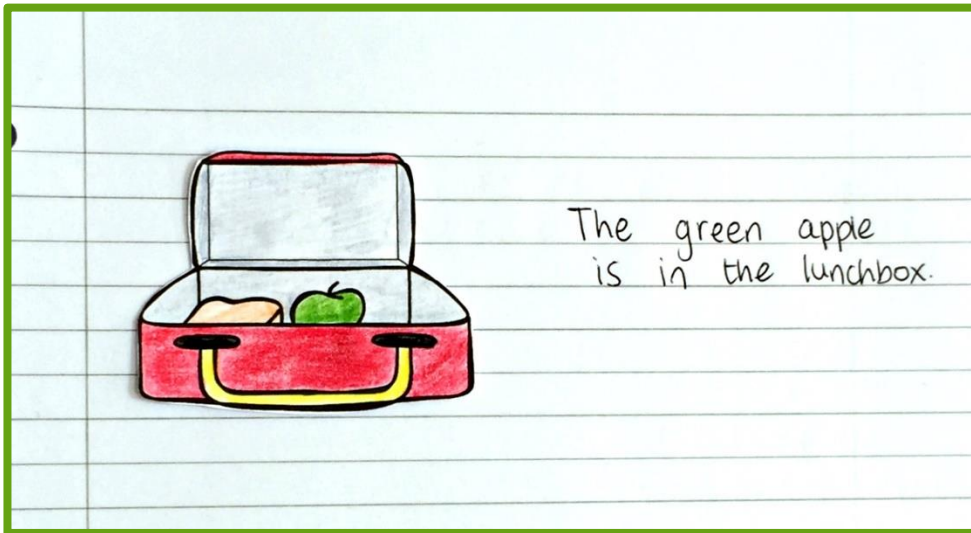 The green apple
is in the lunchbox.